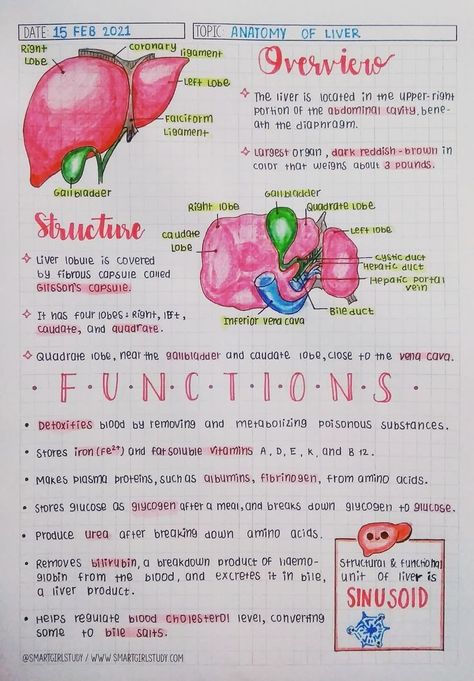 DATE: 15 FEB 2021
TOPIC: ANATOMY OF LIVER
Right
lobe
coronary
ligament
Left lobe
Falciform
Ligament
Gallbladder
Overview
The liver is located in the upper-right
portion of the abdominal cavity, bene-
ath the diaphragm.
Largest organ, dark reddish-brown in
color that weighs about 3 pounds.
Structure
Liver lobule is covered
by fibrous capsule called
Glisson's capsule.
It has four lobes: right, left,
caudate, and quadrate.
Quadrate lobe, near the gallbladder and caudate lobe, close to the vena cava.
Gallbladder
Right lobe
Quadrate lobe
caudate
Lobe
Left lobe
cystic duct
Hepatic duct
Hepatic portal
vein
Bile duct
Inferior vena cava
FUNCTIONS
Detoxifies blood by removing and metabolizing poisonous substances.
Stores iron (Fe²⁺) and fat soluble vitamins A, D, E, K, and B 12.
Makes plasma proteins, such as albumins, fibrinogen, from amino acids.
Stores glucose as glycogen after a meal, and breaks down glycogen to glucose.
Produce urea after breaking down amino acids.
Removes bilirubin, a breakdown product of haemo-
globin from the blood, and excretes it in bile,
a liver product.
Helps regulate blood cholesterol level, converting
some to bile salts.
Structural & functional
unit of liver is
SINUSOID
@SMARTGIRLSTUDY / WWW.SMARTGIRLSTUDY.COM